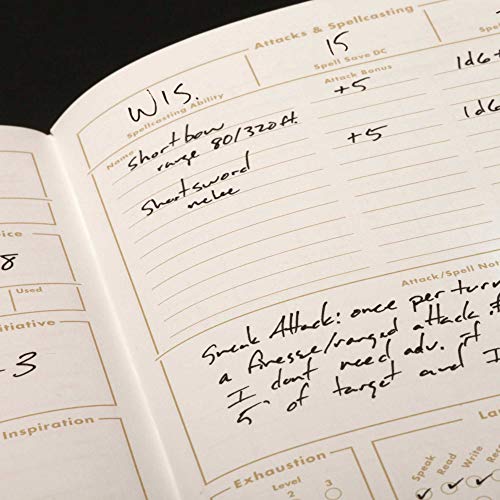 Attacks & Spellcasting
WIS. 15
Spellcasting Ability Spell Save DC
Name Attack Bonus
shortbow +5 1d6+
range 80/320ft.
shortsword +5 1d6
melee
Attack/Spell Not
Sneak Attack: once per turn
a finesse/ranged attack
I dont need adv. if
5' of target and I
8
Used
itiative
3
Inspiration
Exhaustion
Level
2 3
La
Speak
Read
Write